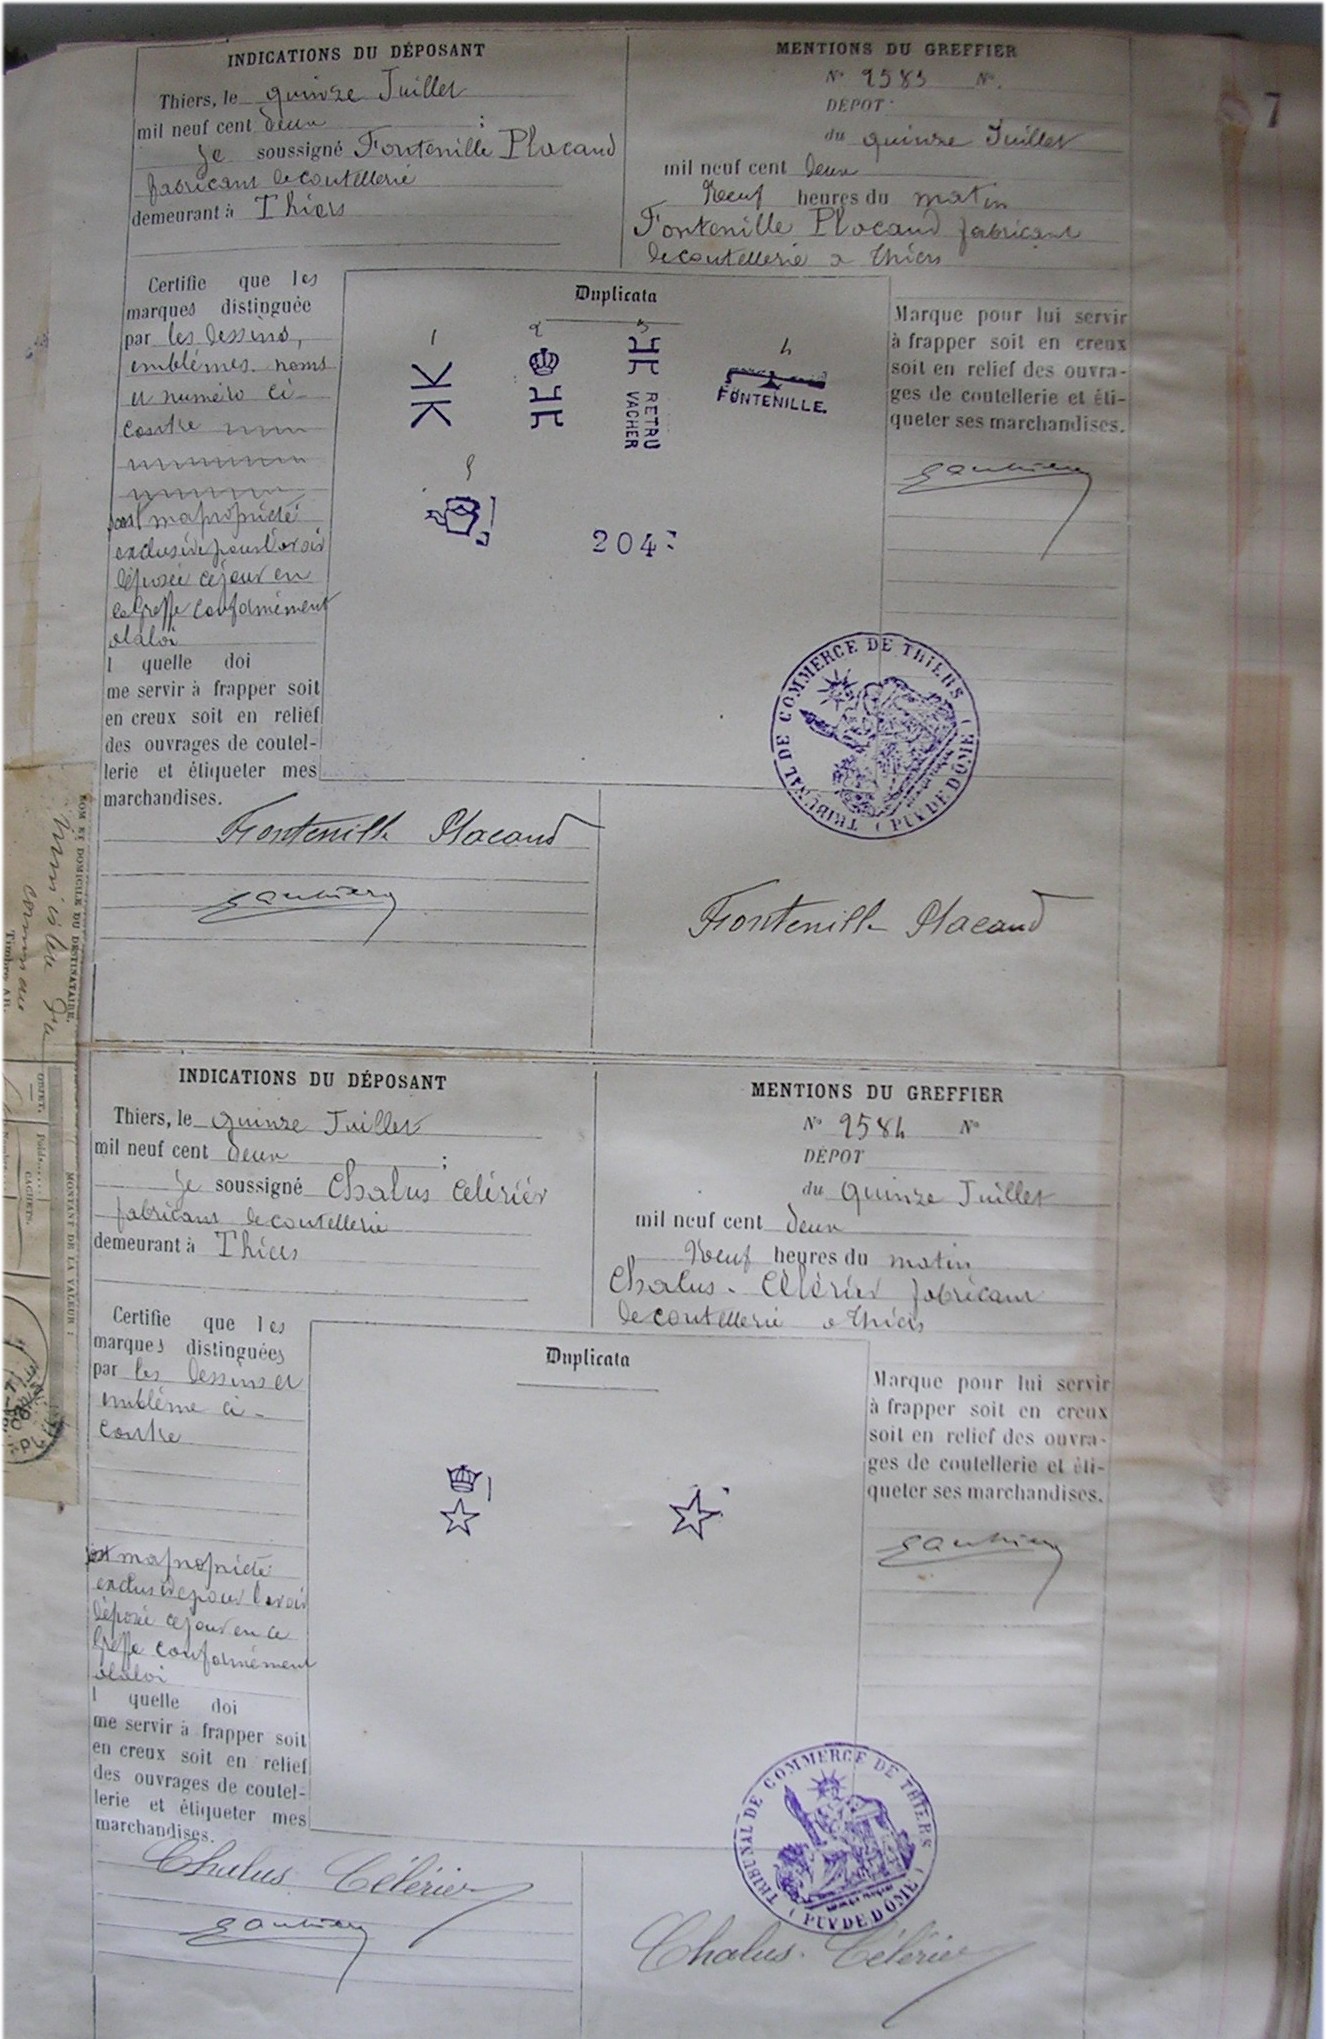 INDICATIONS DU DÉPOSANT
Thiers, le quinze Juillet
mil neuf cent deux ;
Je soussigné Fontenille Placaud
fabricant de coutellerie
demeurant à Thiers
MENTIONS DU GREFFIER
N° 2583 N°.
DÉPOT
du quinze Juillet
mil neuf cent deux
Neuf heures du matin
Fontenille Placaud fabricant
de coutellerie a Thiers
7
Certifie que les
marques distinguée
par les dessins,
emblémes. noms
et numéro ci-
contre
est ma propriété
exclusive pour l'avoir
déposée ce jour en
ce Greffe conformément
a la loi
l quelle doi
me servir à frapper soit
en creux soit en relief
des ouvrages de coutel-
lerie et étiqueter mes
marchandises.
Duplicata
1
2
3
4
RETRU
VACHER
FONTENILLE.
5
204
Marque pour lui servir
à frapper soit en creux
soit en relief des ouvra-
ges de coutellerie et éti-
queter ses marchandises.
TRIBUNAL DE COMMERCE DE THIERS
(PUY DE DÔME)
Fontenille Placaud
Fontenille Placaud
NOM ET DOMICILE DU DESTINATAIRE.
MONTANT DE LA VALEUR :
OBJET.
CACHETS.
INDICATIONS DU DÉPOSANT
Thiers, le quinze Juillet
mil neuf cent deux ;
Je soussigné Chalus Celérier
fabricant de coutellerie
demeurant à Thiers
MENTIONS DU GREFFIER
N° 2584 N°
DÉPOT
du quinze Juillet
mil neuf cent deux
Neuf heures du matin
Chalus. Célérier fabricant
de coutellerie a Thiers
Certifie que les
marques distinguées
par les dessins et
embléme ci-
contre
est ma propriété
exclusive pour l'avoir
déposée ce jour en ce
Greffe conformément
a la loi
l quelle doi
me servir à frapper soit
en creux soit en relief
des ouvrages de coutel-
lerie et étiqueter mes
marchandises.
Duplicata
Marque pour lui servir
à frapper soit en creux
soit en relief des ouvra-
ges de coutellerie et éti-
queter ses marchandises.
TRIBUNAL DE COMMERCE DE THIERS
(PUY DE DÔME)
Chalus Célérier
Chalus. Célérier